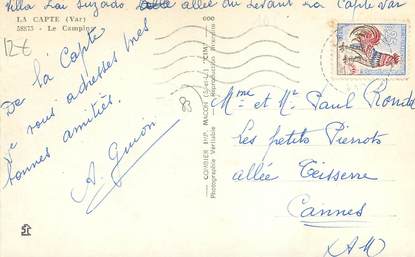 Villa Lou allée du Levant La Capte Var
LA CAPTE (Var)
58875 - Le Camping
12€
De la Capte
Je vous adresses mes
bonnes amitiés.
A. Guion
83
COMBIER IMP. MACON (S.-et-L.) "CIM"
Photographie Véritable — Reproduction Interdite
Mme et Mr Paul
Les petits Pierrots
allée Teisserre
Cannes
A M